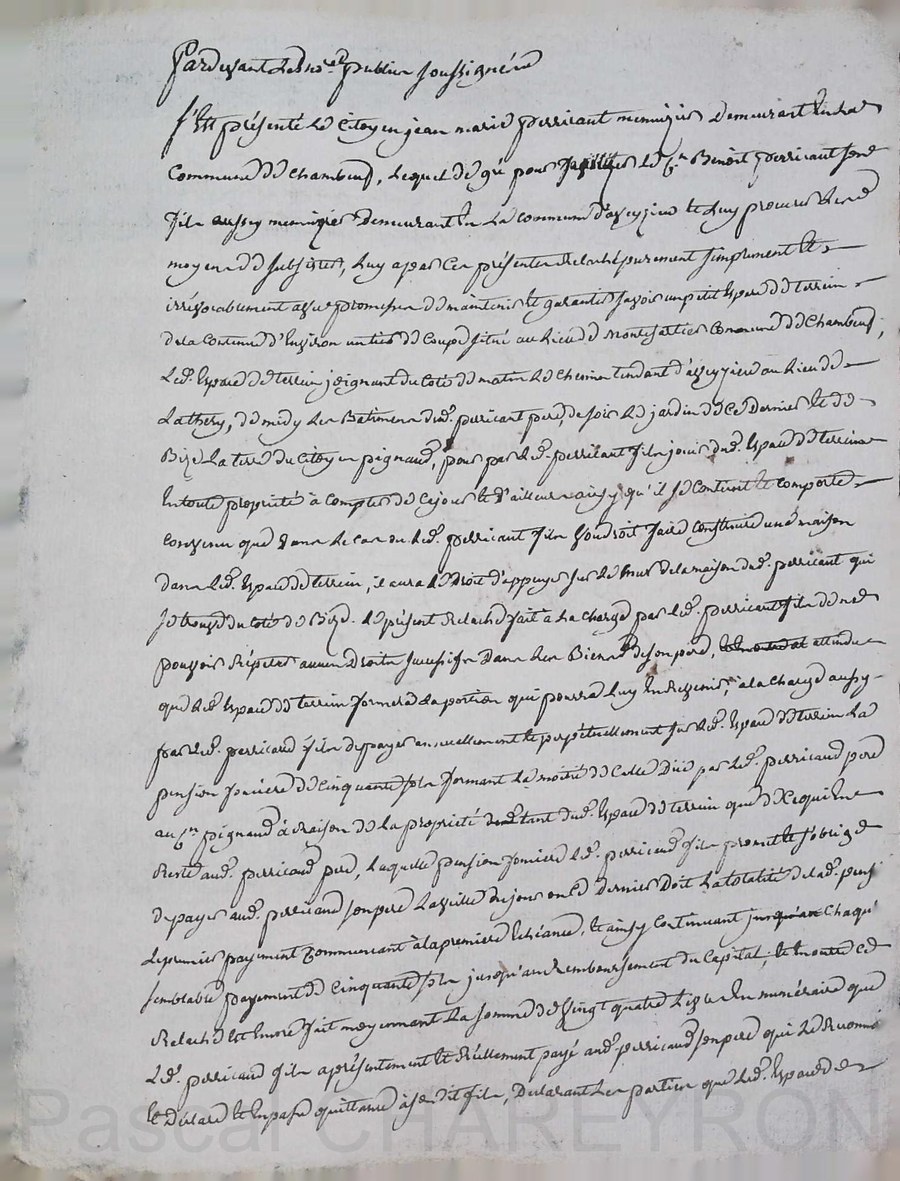 Pardevant Les no.res publics soussignés
s'Est présenté Le Citoyen jean marie perricaut menuizier Demeurant En La
Commune de Chambeuf, Lequel de gré pour faciliter Le C.en Benoit perricaut son
fils aussy menuizier Demeurant En La commune d'aveyzieu Et Luy procurer Les
moyens de subsister, Luy a par Ces présentes Relaché purement simplement Et
irrévocablement avec promesse de maintenir Et garantir savoir un petit Espace de terrein
de la Contenue d'Environ un tiers de Coupe situé au Lieu de Montchartier Commune de Chambeuf,
Led. Espace de terrein joignant du Coté de matin Le Chemin tendant d'aveyzieu au Lieu de
Lathery, de midy Les Batimens dud. perricaut pere, de soir Le jardin de Ce Dernier Et de
Bize La terre du Citoyen pignaud, pour par Led. perricaut fils jouir dud. Espace de terrein
En toute propriété à Compter de Ce jour Et d'ailleurs ainsy qu'il se Contient Et comporte
Convenu que Dans Le Cas ou Led. perricaut fils Voudroit faire Construire une maison
dans Led. Espace de terrein, il aura Le Droit d'appuyer sur Le mur de la maison dud. perricaut qui
se trouve du Coté de Bize. Le présent Relaché fait à La Charge par Led. perricaut fils de ne
pouvoir Répéter aucun Droits successifs Dans Les Biens de son pere, attendu
que Led. Espace de terrein formera La portion qui pourra Luy En Revenir, à la Charge aussy
par Led. perricaud fils de payer annuellement Et perpétuellement sur Led. Espace de terrein La
pension fonciere de Cinquante sols formant La moitié de Celle Due par Led. perricaud pere
au C.en pignaud à Raison de La propriété tant dud. Espace de terrein que de Ce qui Luy
Reste aud. perricaud pere, Laquelle pension fonciere Led. perricaud fils promet Et s'oblige
de payer aud. perricaud son pere La veille du jour ou Ce Dernier Doit La totalité de lad. pension
Le premier payement Commencant à la premiere Echéance, Et ainsy Continuant Chaque
semblable payement de Cinquante sols jusqu'au Remboursement du Capital; Et
Relaché Est Encore fait moyennant La somme de Vingt quatre Livres En numéraire que
Led. perricaud fils a présentement Et Réellement payé aud. perricaud son pere qui Le Reconnoit
Et Déclare Et En passe quittance à sondit fils, Déclarant Les parties que Led. Espace de
Pascal CHAREYRON